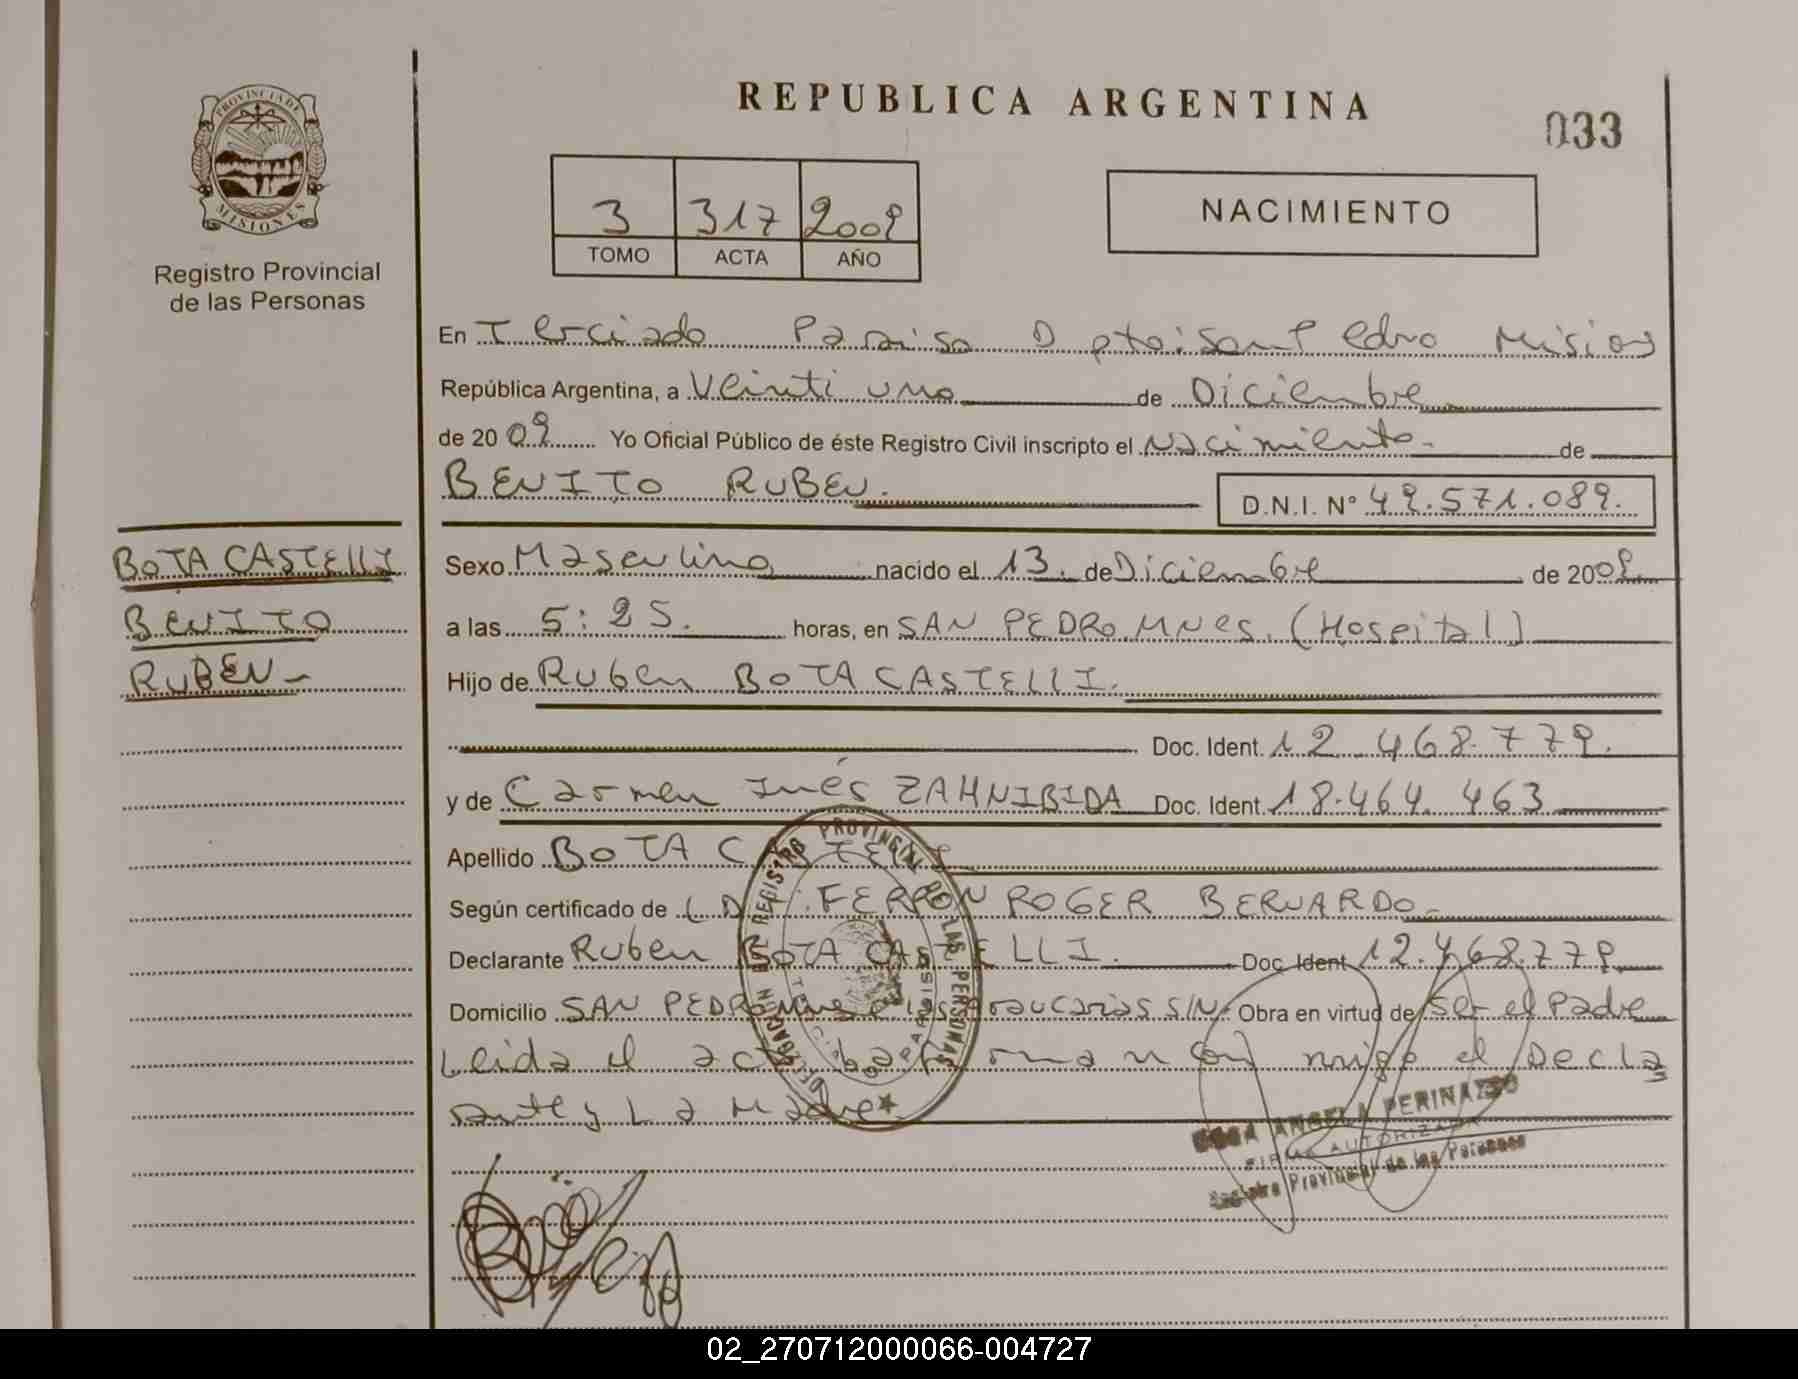 PROVINCIA DE
MISIONES
Registro Provincial
de las Personas
REPUBLICA ARGENTINA
033
3 317 2009
TOMO ACTA AÑO
NACIMIENTO
En Terciado Paraiso Dpto: San Pedro Misiones
República Argentina, a Veinti uno de Diciembre
de 2009 Yo Oficial Público de éste Registro Civil inscripto el Nacimiento de
BENITO RUBEN.
D.N.I. Nº 49.571.089.
BOTA CASTELLI
BENITO
RUBEN
Sexo Masculino nacido el 13 de Diciembre de 2009
a las 5:25. horas, en SAN PEDRO MNES. (Hospital)
Hijo de Ruben BOTA CASTELLI.
Doc. Ident. 12.468.779.
y de Carmen Inés ZAHNIBIDA Doc. Ident. 18.464.463
Apellido BOTA CASTELLI
Según certificado de FERRON ROGER BERNARDO
Declarante Ruben BOTA CASTELLI. Doc. Ident. 12.468.779
Domicilio SAN PEDRO Araucarias S/N Obra en virtud de ser el Padre
Leida el acta, ba firman conmigo el Decla
ante y La Madre
DELEGACION DE REGISTRO PROVINCIAL DE LAS PERSONAS
ANGELA PERINAZZO
FIRMA AUTORIZADA
Registro Provincial de las Personas
02_270712000066-004727